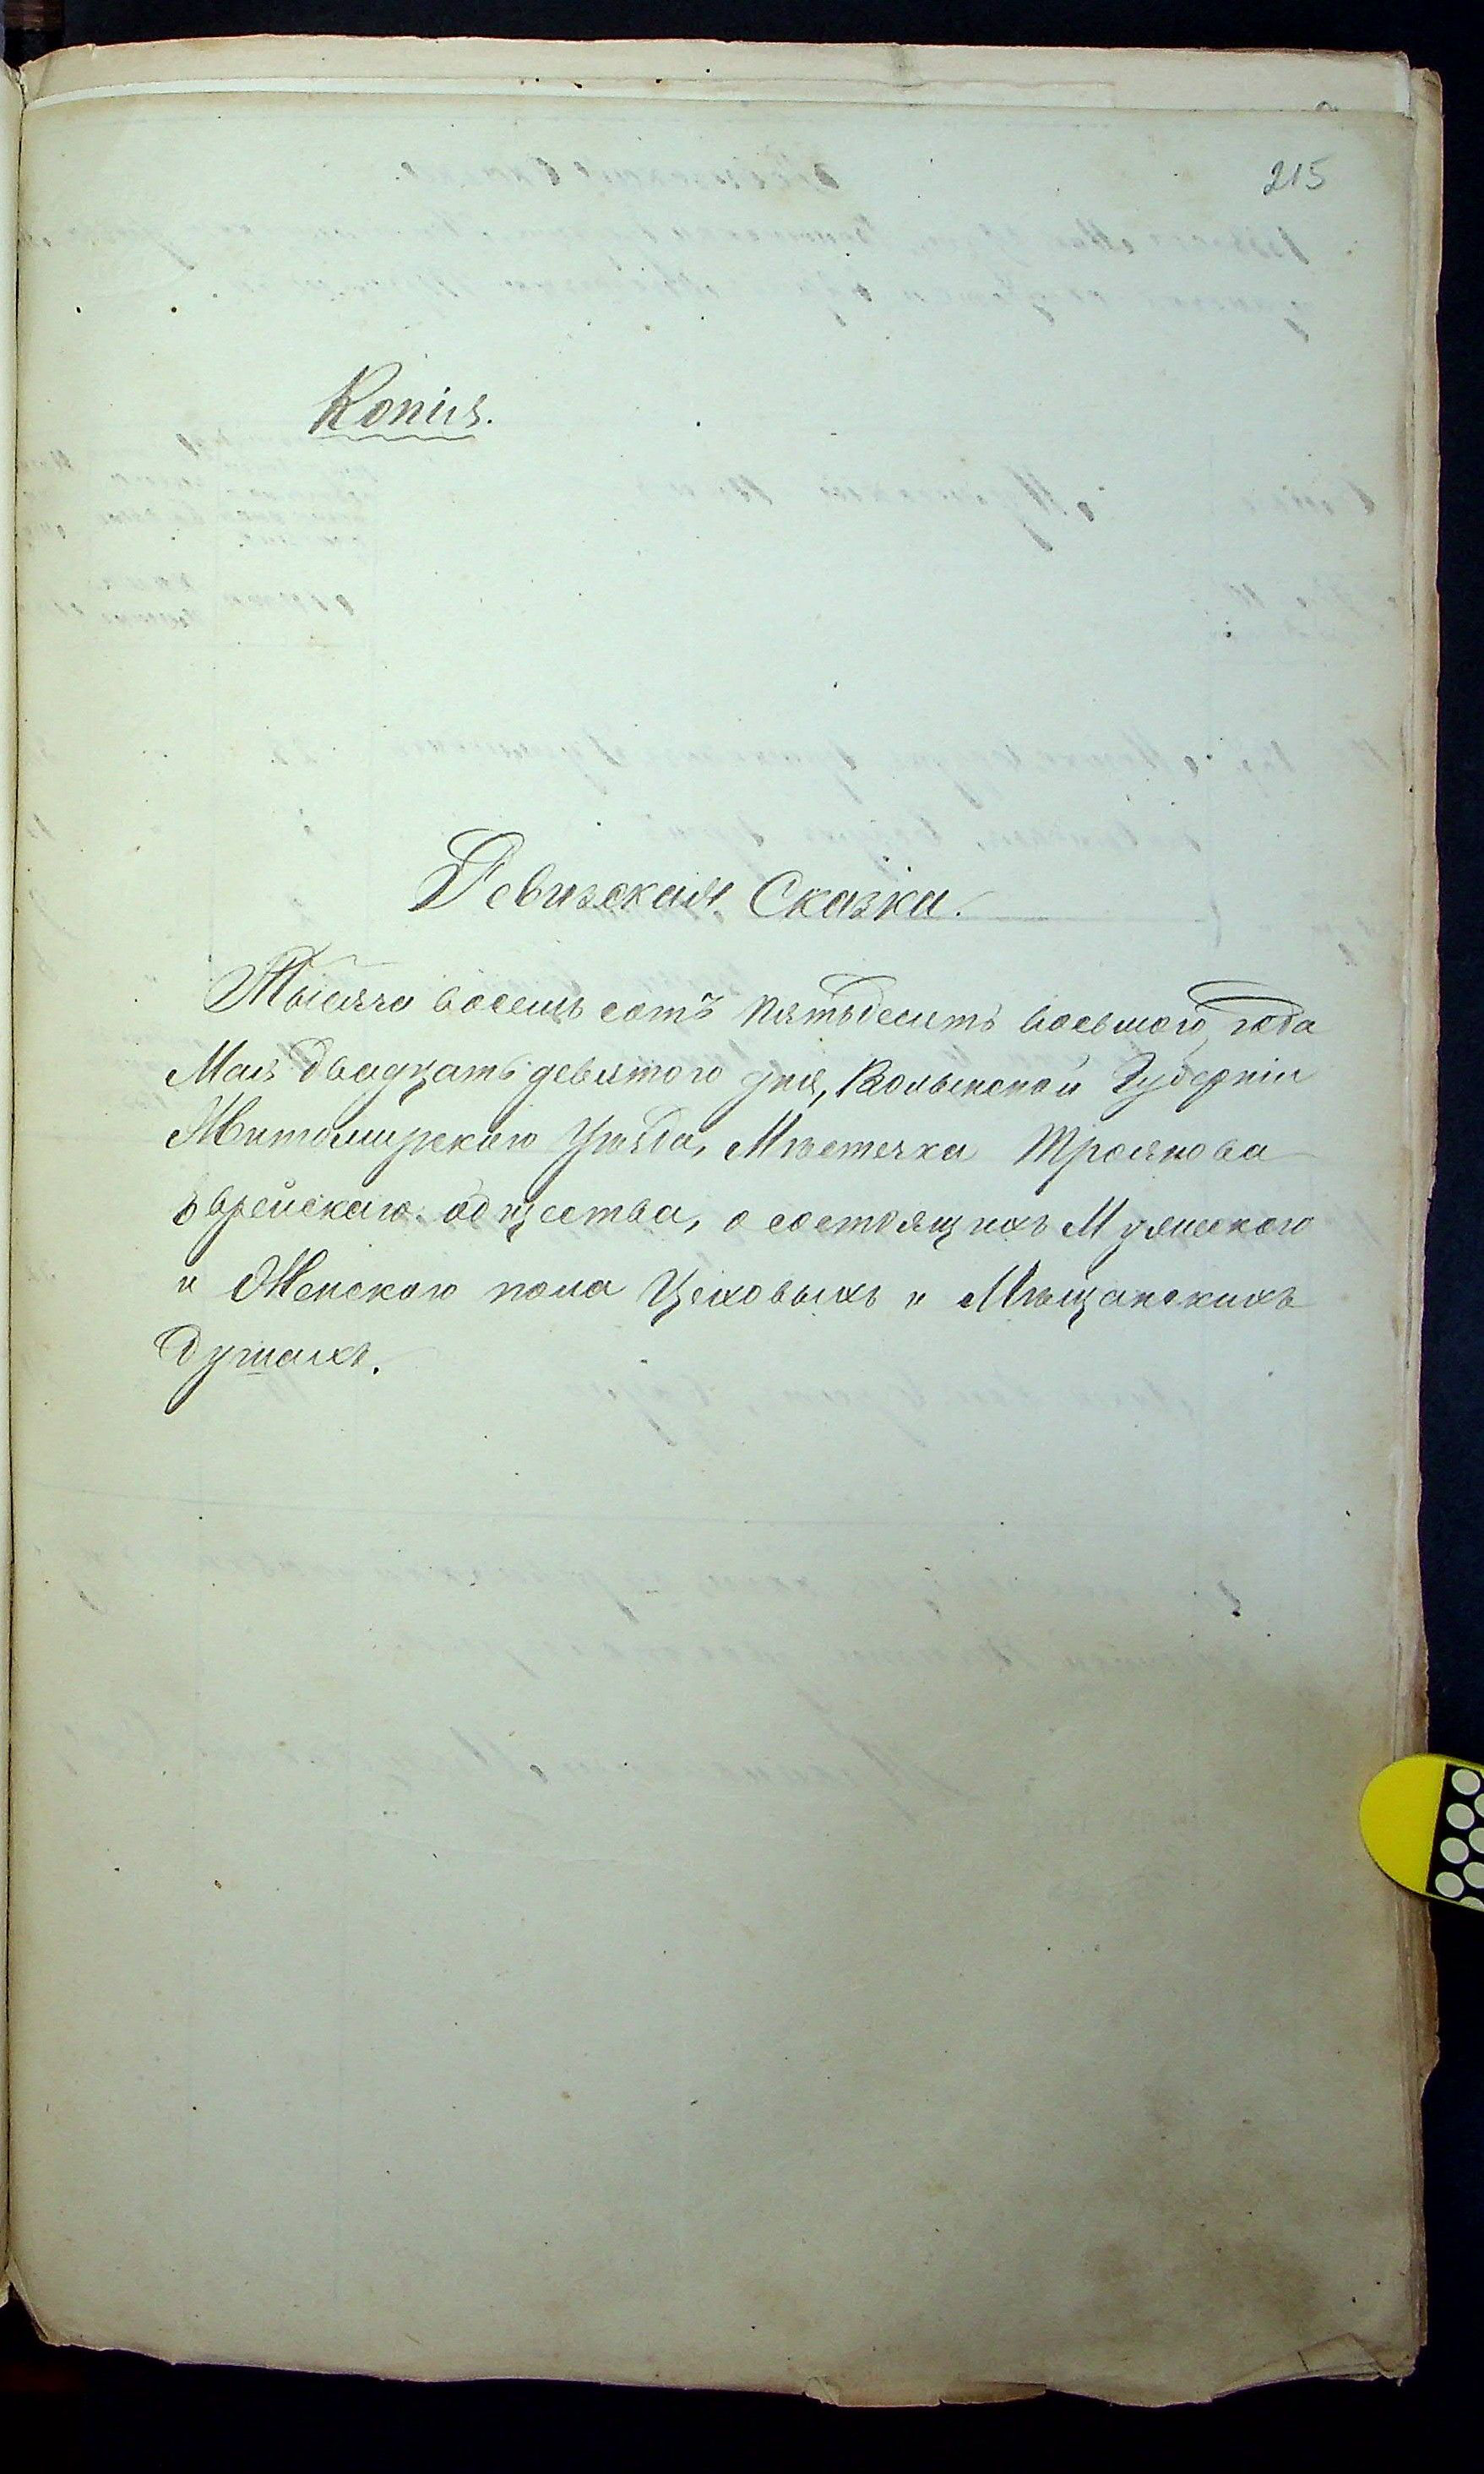 215
Копія.
Ревизская Сказка.
Тысяча восемь сотъ пятьдесятъ восьмого года
Мая двадцать девятого дня, Волынской Губерніи
Житомирскаго Уѣзда, Мѣстечка Троянова
Еврейскаго общества, о состоящихъ Мужескаго
и Женскаго пола Цеховыхъ и Мѣщанскихъ
душахъ.